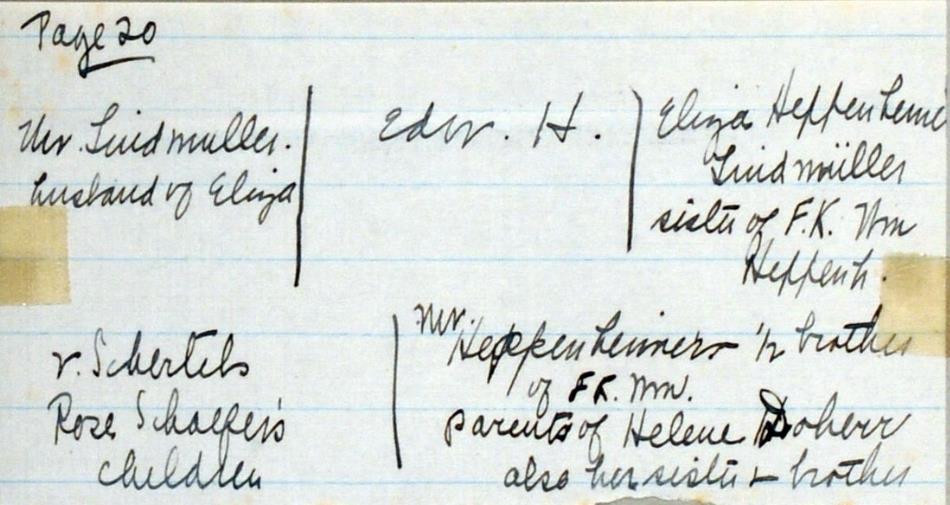 Page 20
Mr. Lindmuller.
husband of Eliza
Edw H.
Eliza Heppenheime
Lindmüller
sister of F.K. Wm
Heppenh.
v. Schertels
Rose Schaefer's
children
Mr.
Heppenheimers 1/2 brother
of F.K. Wm.
parents of Helene Doherr
also her sister & brother